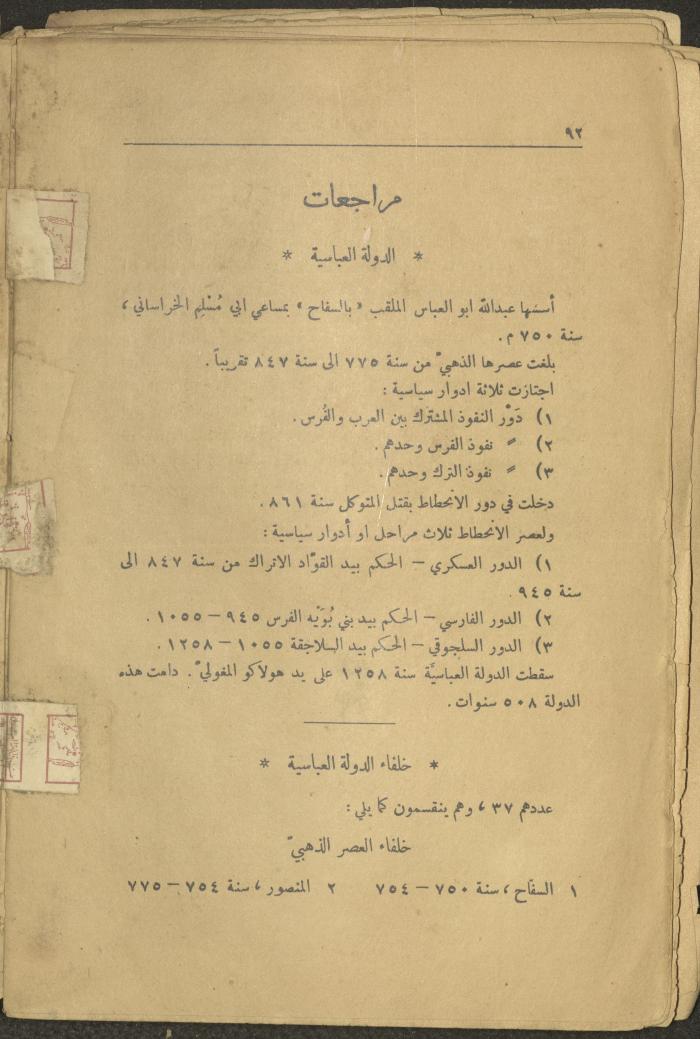 ٩٢
مراجعات
* الدولة العباسية *
أسسها عبدالله ابو العباس الملقب « بالسفاح » بمساعي ابي مُسْلِم الخراساني ،
سنة ٧٥٠ م .
بلغت عصرها الذهبيّ من سنة ٧٧٥ الى سنة ٨٤٧ تقريباً .
اجتازت ثلاثة ادوار سياسية :
١) دَوْر النفوذ المشترك بين العرب والفُرس .
٢) » نفوذ الفرس وحدهم .
٣) » نفوذ الترك وحدهم .
دخلت في دور الانحطاط بقتل المتوكل سنة ٨٦١ .
ولعصر الانحطاط ثلاث مراحل او أدوار سياسية :
١) الدور العسكري – الحكم بيد القوّاد الاتراك من سنة ٨٤٧ الى
سنة ٩٤٥ .
٢) الدور الفارسي – الحكم بيد بني بُوَيْه الفرس ٩٤٥ – ١٠٥٥ .
٣) الدور السلجوقي – الحكم بيد السلاجقة ١٠٥٥ – ١٢٥٨ .
سقطت الدولة العباسيَّة سنة ١٢٥٨ على يد هولاكو المغوليّ . دامت هذه
الدولة ٥٠٨ سنوات .
* خلفاء الدولة العباسية *
عددهم ٣٧ ، وهم ينقسمون كما يلي :
خلفاء العصر الذهبيّ
١ السفّاح ، سنة ٧٥٠ – ٧٥٤ ٢ المنصور ، سنة ٧٥٤ – ٧٧٥